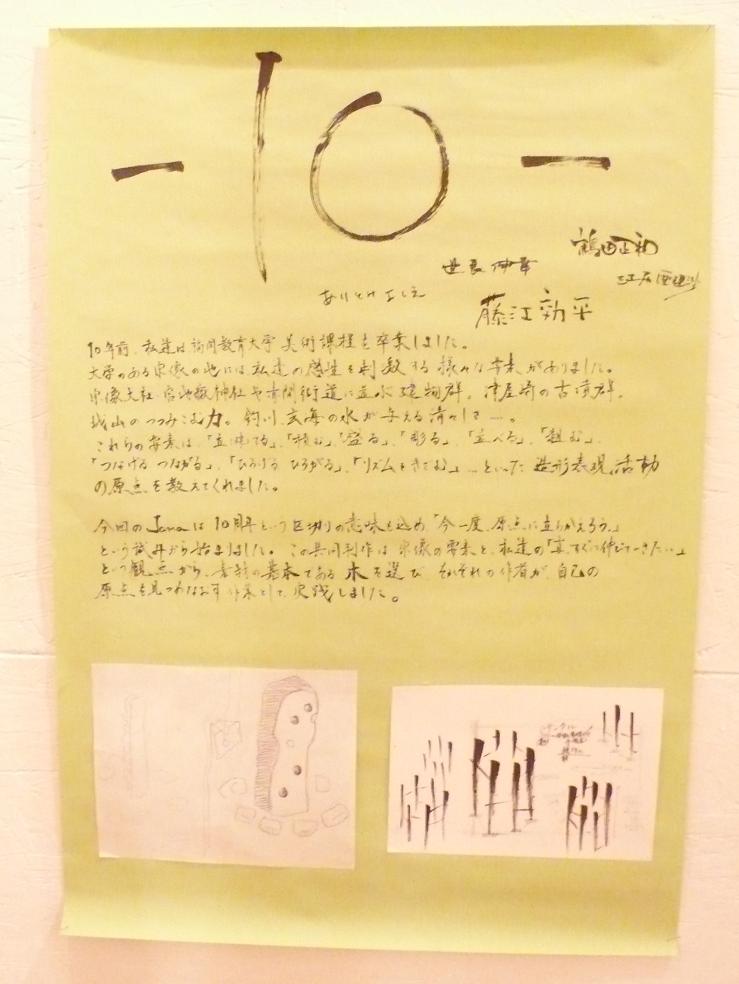 - 10 -
鶴田正和
世良伸幸
ありとめよしえ
藤江効平
10年前、私達は福岡教育大学美術課程を卒業しました。
大学のある宗像の地には私達の感性を刺激する様々な要素がありました。
宗像大社、宮地嶽神社や唐津街道に並ぶ建物群、津屋崎の古墳群、
城山のつつみこむ力。釣川、玄海の水が与える清々しさ…。
これらの要素は、「積む」「盛る」、「彫る」、「並べる」、「組む」、
「つなげる つながる」、「ひろげる ひろがる」、「リズムをきざむ」…といった造形表現活動
の原点を教えてくれました。
今回の は10周年という区切りの意味も込め「今一度、原点に立ちかえろう。」
という試みから始まりました。この共同制作は宗像の要素と、私達の「真っすぐに伸びていきたい…」
という観点から、素材の基本である木を選び、それぞれの作者が、自己の
原点を見つめなおす作業として、実践しました。